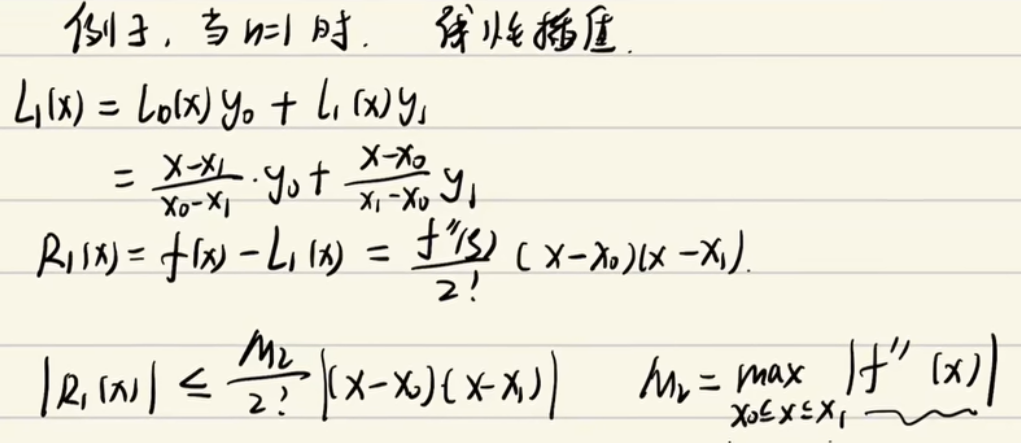 例子，当 n=1 时. 线性插值.
L₁(x) = l₀(x) y₀ + l₁(x) y₁
= \frac{x-x₁}{x₀-x₁} · y₀ + \frac{x-x₀}{x₁-x₀} y₁
R₁(x) = f(x) - L₁(x) = \frac{f''(ξ)}{2!} (x-x₀)(x-x₁).
|R₁(x)| ≤ \frac{M₂}{2!} |(x-x₀)(x-x₁)| M₂ = \max_{x₀≤x≤x₁} |f''(x)|